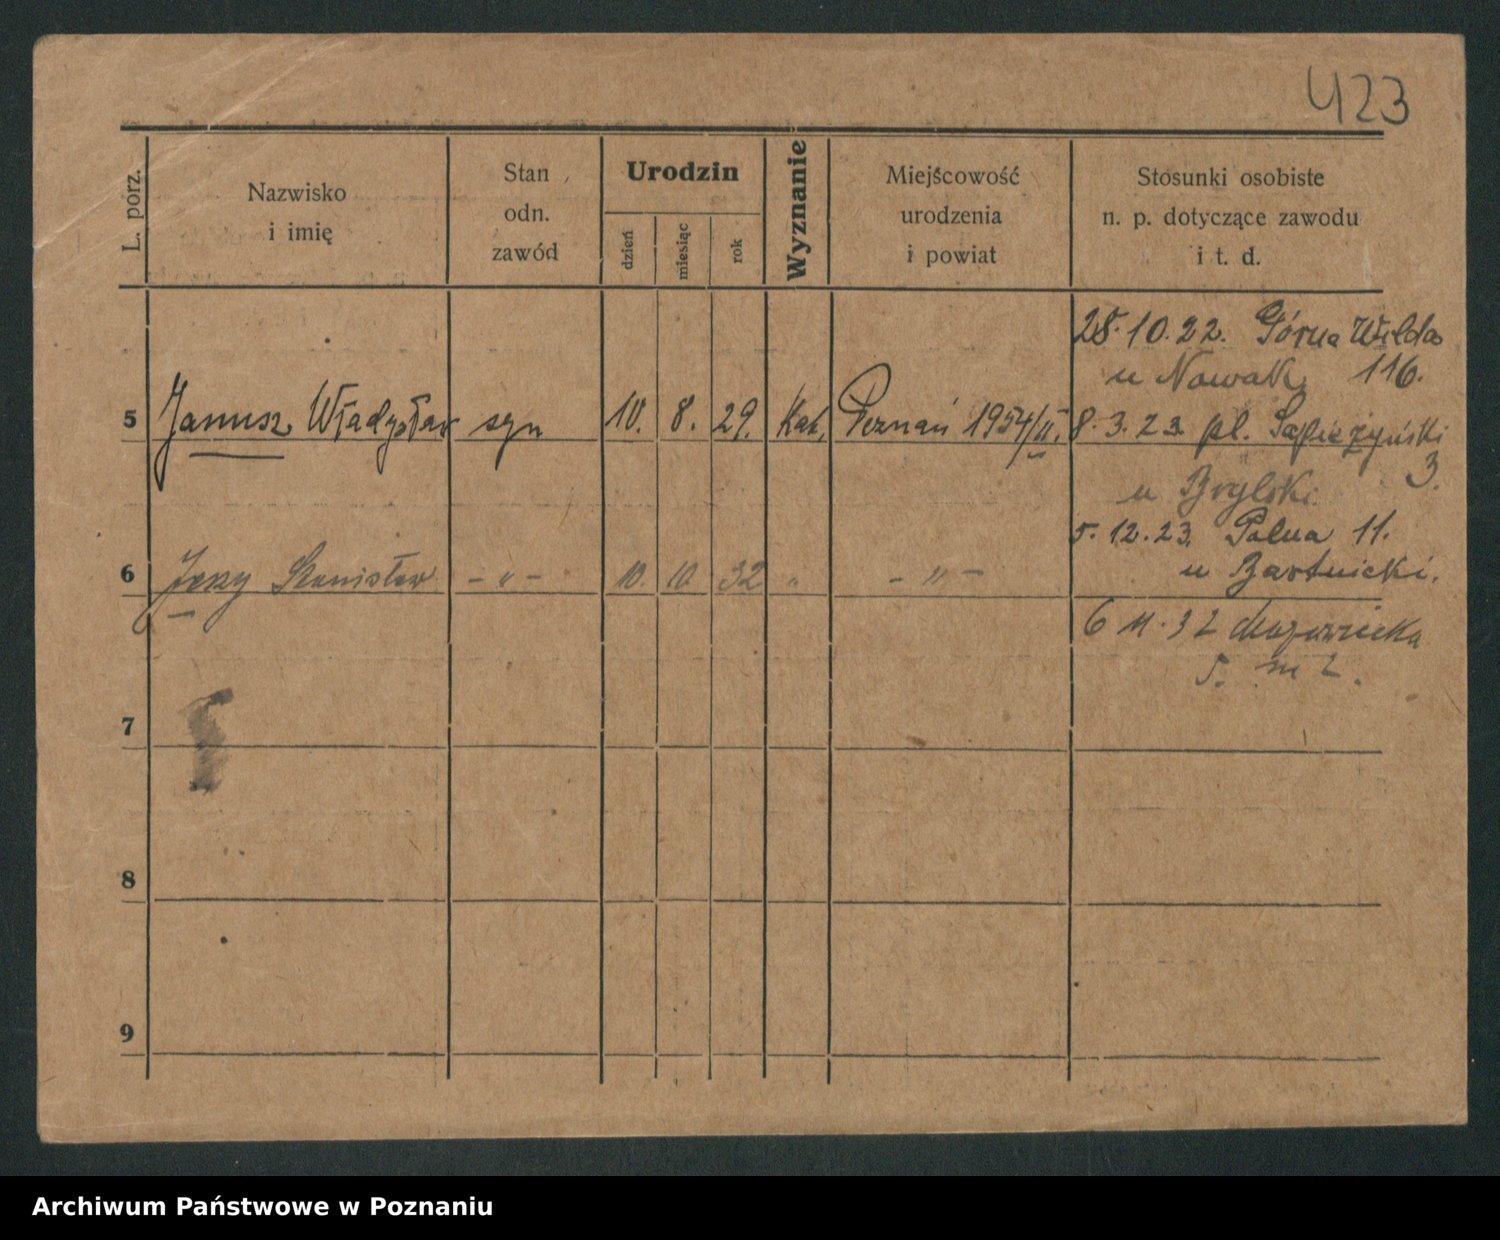 423
L. porz.
Nazwisko
i imię
Stan
odn.
zawód
Urodzin
dzień
miesiąc
rok
Wyznanie
Miejscowość
urodzenia
i powiat
Stosunki osobiste
n. p. dotyczące zawodu
i t. d.
28.10.22. Górna Wilda
u Nowak 116.
5 Janusz Władysław syn 10. 8. 29. Kat. Poznań 1954/II. 8.3.23 pl. Sapieżyński
3.
u Brylski
5.12.23. Polna 11.
6 Jerzy Stanisław - „ - 10. 10. 32 „ - „ -
u Bartnicki.
6 11.32 Mazowiecka
5. m 2.
7
8
9
Archiwum Państwowe w Poznaniu